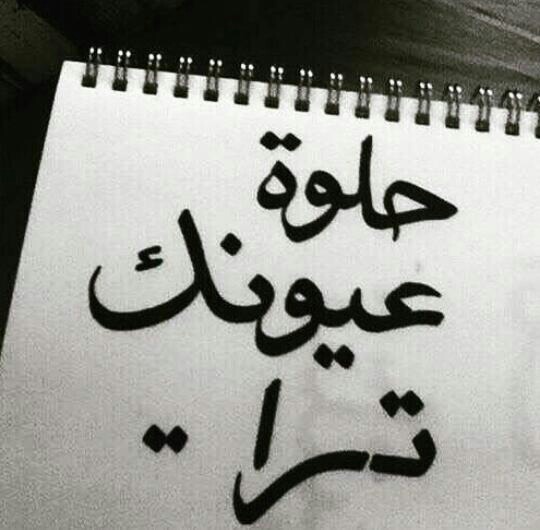 حلوة
عيونك
ترا ..